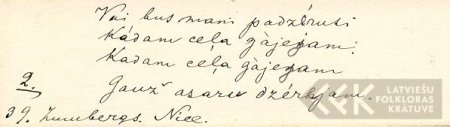 Vai bus man padzērusi
Kādam ceļa gàjeņam;
Kadam ceļa gàjeņam
2. Gauž asaru dzērējam.
39. Zumbergs. Nice.
LATVIEŠU
FOLKLORAS
KRĀTUVE